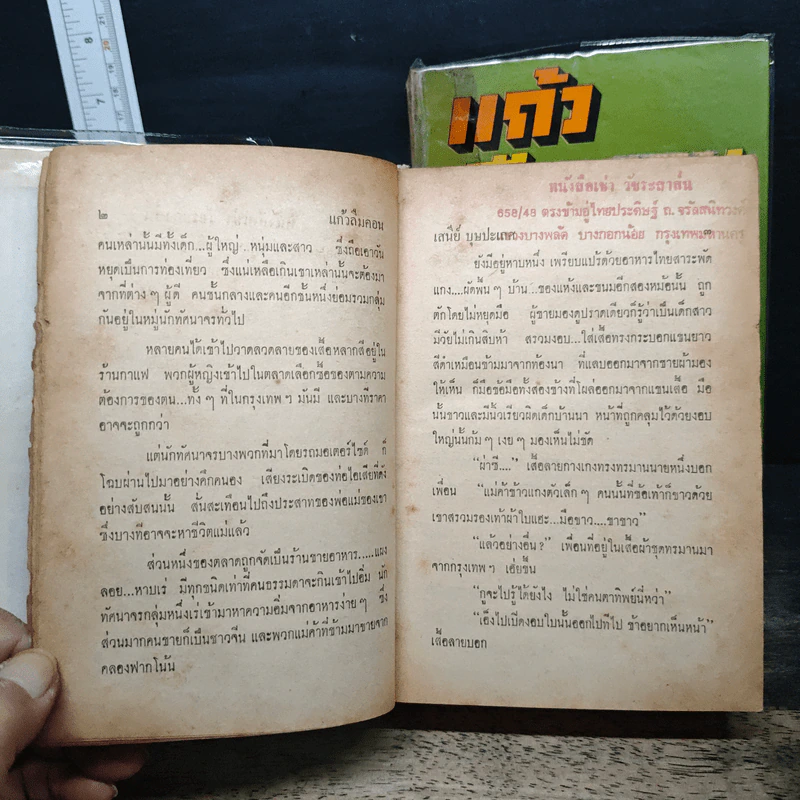 แก้ว
๒ แก้วลืมคอน
คนเหล่านั้นมีทั้งเด็ก...ผู้ใหญ่ หนุ่มและสาว ซึ่งถือเอาวัน
หยุดเป็นการท่องเที่ยว ซึ่งแน่เหลือเกินเขาเหล่านั้นจะต้องมา
จากที่ต่าง ๆ ผู้ดี คนชั้นกลางและคนอีกชั้นหนึ่งย่อมรวมกลุ่ม
กันอยู่ในหมู่นักทัศนาจรทั่วไป
หลายคนได้เข้าไปวาดลวดลายของเสื้อหลากสีอยู่ใน
ร้านกาแฟ พวกผู้หญิงเข้าไปในตลาดเลือกซื้อของตามความ
ต้องการของตน...ทั้ง ๆ ที่ในกรุงเทพ ฯ มันมี และบางทีราคา
อาจจะถูกกว่า
แต่นักทัศนาจรบางพวกที่มาโดยรถมอเตอร์ไซด์ ก็
โฉบผ่านไปมาอย่างคึกคนอง เสียงระเบิดของท่อไอเสียที่ดัง
อย่างสับสนนั้น สั่นสะเทือนไปถึงประสาทของพ่อแม่ของเขา
ซึ่งบางทีอาจจะหาชีวิตแม่แล้ว
ส่วนหนึ่งของตลาดถูกจัดเป็นร้านขายอาหาร....แผง
ลอย...หาบเร่ มีทุกชนิดเท่าที่คนธรรมดาจะกินเข้าไปอิ่ม นัก
ทัศนาจรกลุ่มหนึ่งเร่เข้ามาหาความอิ่มจากอาหารง่าย ๆ ซึ่ง
ส่วนมากคนขายก็เป็นชาวจีน และพวกแม่ค้าที่ข้ามมาขายจาก
คลองฟากโน้น
หนังสือเช่า วัชระสาส์น
658/48 ตรงข้ามอู่ไทยประดิษฐ์ ถ. จรัลสนิทวงศ์
แขวงบางพลัด บางกอกน้อย กรุงเทพมหานคร
เสนีย์ บุษปะเกศ ๓
ยังมีอยู่หาบหนึ่ง เพรียบแปร้ด้วยอาหารไทยสาระพัด
แกง....ผัดพื้น ๆ บ้าน...ของแห้งและขนมอีกสองหม้อนั้น ถูก
ตักโดยไม่หยุดมือ ผู้ขายมองดูปราดเดียวก็รู้ว่าเป็นเด็กสาว
มีวัยไม่เกินสิบห้า สรวมงอบ...ใส่เสื้อทรงกระบอกแขนยาว
สีดำเหมือนข้ามมาจากท้องนา ที่แลบออกมาจากชายผ้ามอง
ให้เห็น ก็มือข้อมือทั้งสองข้างที่โผล่ออกมาจากแขนเสื้อ มือ
นั้นขาวและมีนิ้วเรียวผิดเด็กบ้านนา หน้าที่ถูกคลุมไว้ด้วยงอบ
ใหญ่นั้นก้ม ๆ เงย ๆ มองเห็นไม่ชัด
“ผ่าซี....” เสื้อลายกางเกงทรงทรมานนายหนึ่งบอก
เพื่อน “แม่ค้าข้าวแกงตัวเล็ก ๆ คนนั้นที่ข้อเท้าก็ขาวด้วย
เขาสรวมรองเท้าผ้าใบแฮะ...มือขาว....ขาขาว”
“แล้วอย่างอื่น?” เพื่อนที่อยู่ในเสื้อผ้าชุดทรมานมา
จากกรุงเทพ ฯ เอ่ยขึ้น
“กูจะไปรู้ได้ยังไง ไม่ใช่คนตาทิพย์นี่หว่า”
“เอ็งไปเปิดงอบใบนั้นออกไปทีไป๊ ข้าอยากเห็นหน้า”
เสื้อลายบอก